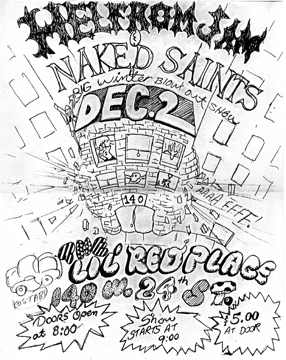 &
NAKED SAINTS
BIG winter Blow out SHOW
DEC. 2
140
LIL' RED PLACE
140 W. 24th ST.
DOORS OPEN
at 8:00
Show
STARTS AT
9:00
$5.00
AT DOOR